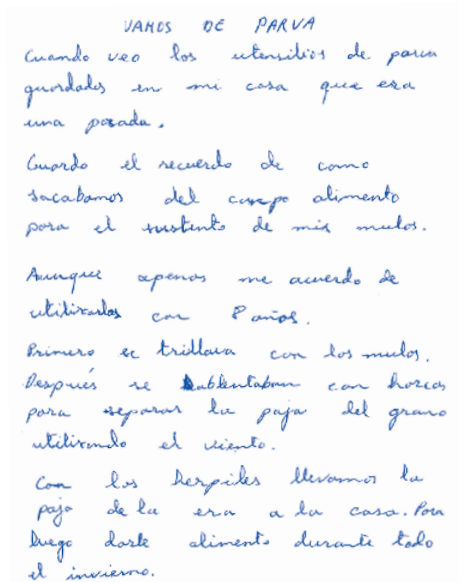 VAMOS DE PARVA
Cuando veo los utensilios de parva
guardados en mi casa que era
una posada.
Guardo el recuerdo de como
sacabamos del campo alimento
para el sustento de mis mulos.
Aunque apenas me acuerdo de
utilizarlos con 8 años.
Primero se trillava con los mulos.
Después se ablentaban con horcas
para separar la paja del grano
utilizando el viento.
Con los herpiles llevamos la
paja de la era a la casa. Para
luego darle alimento durante todo
el invierno.